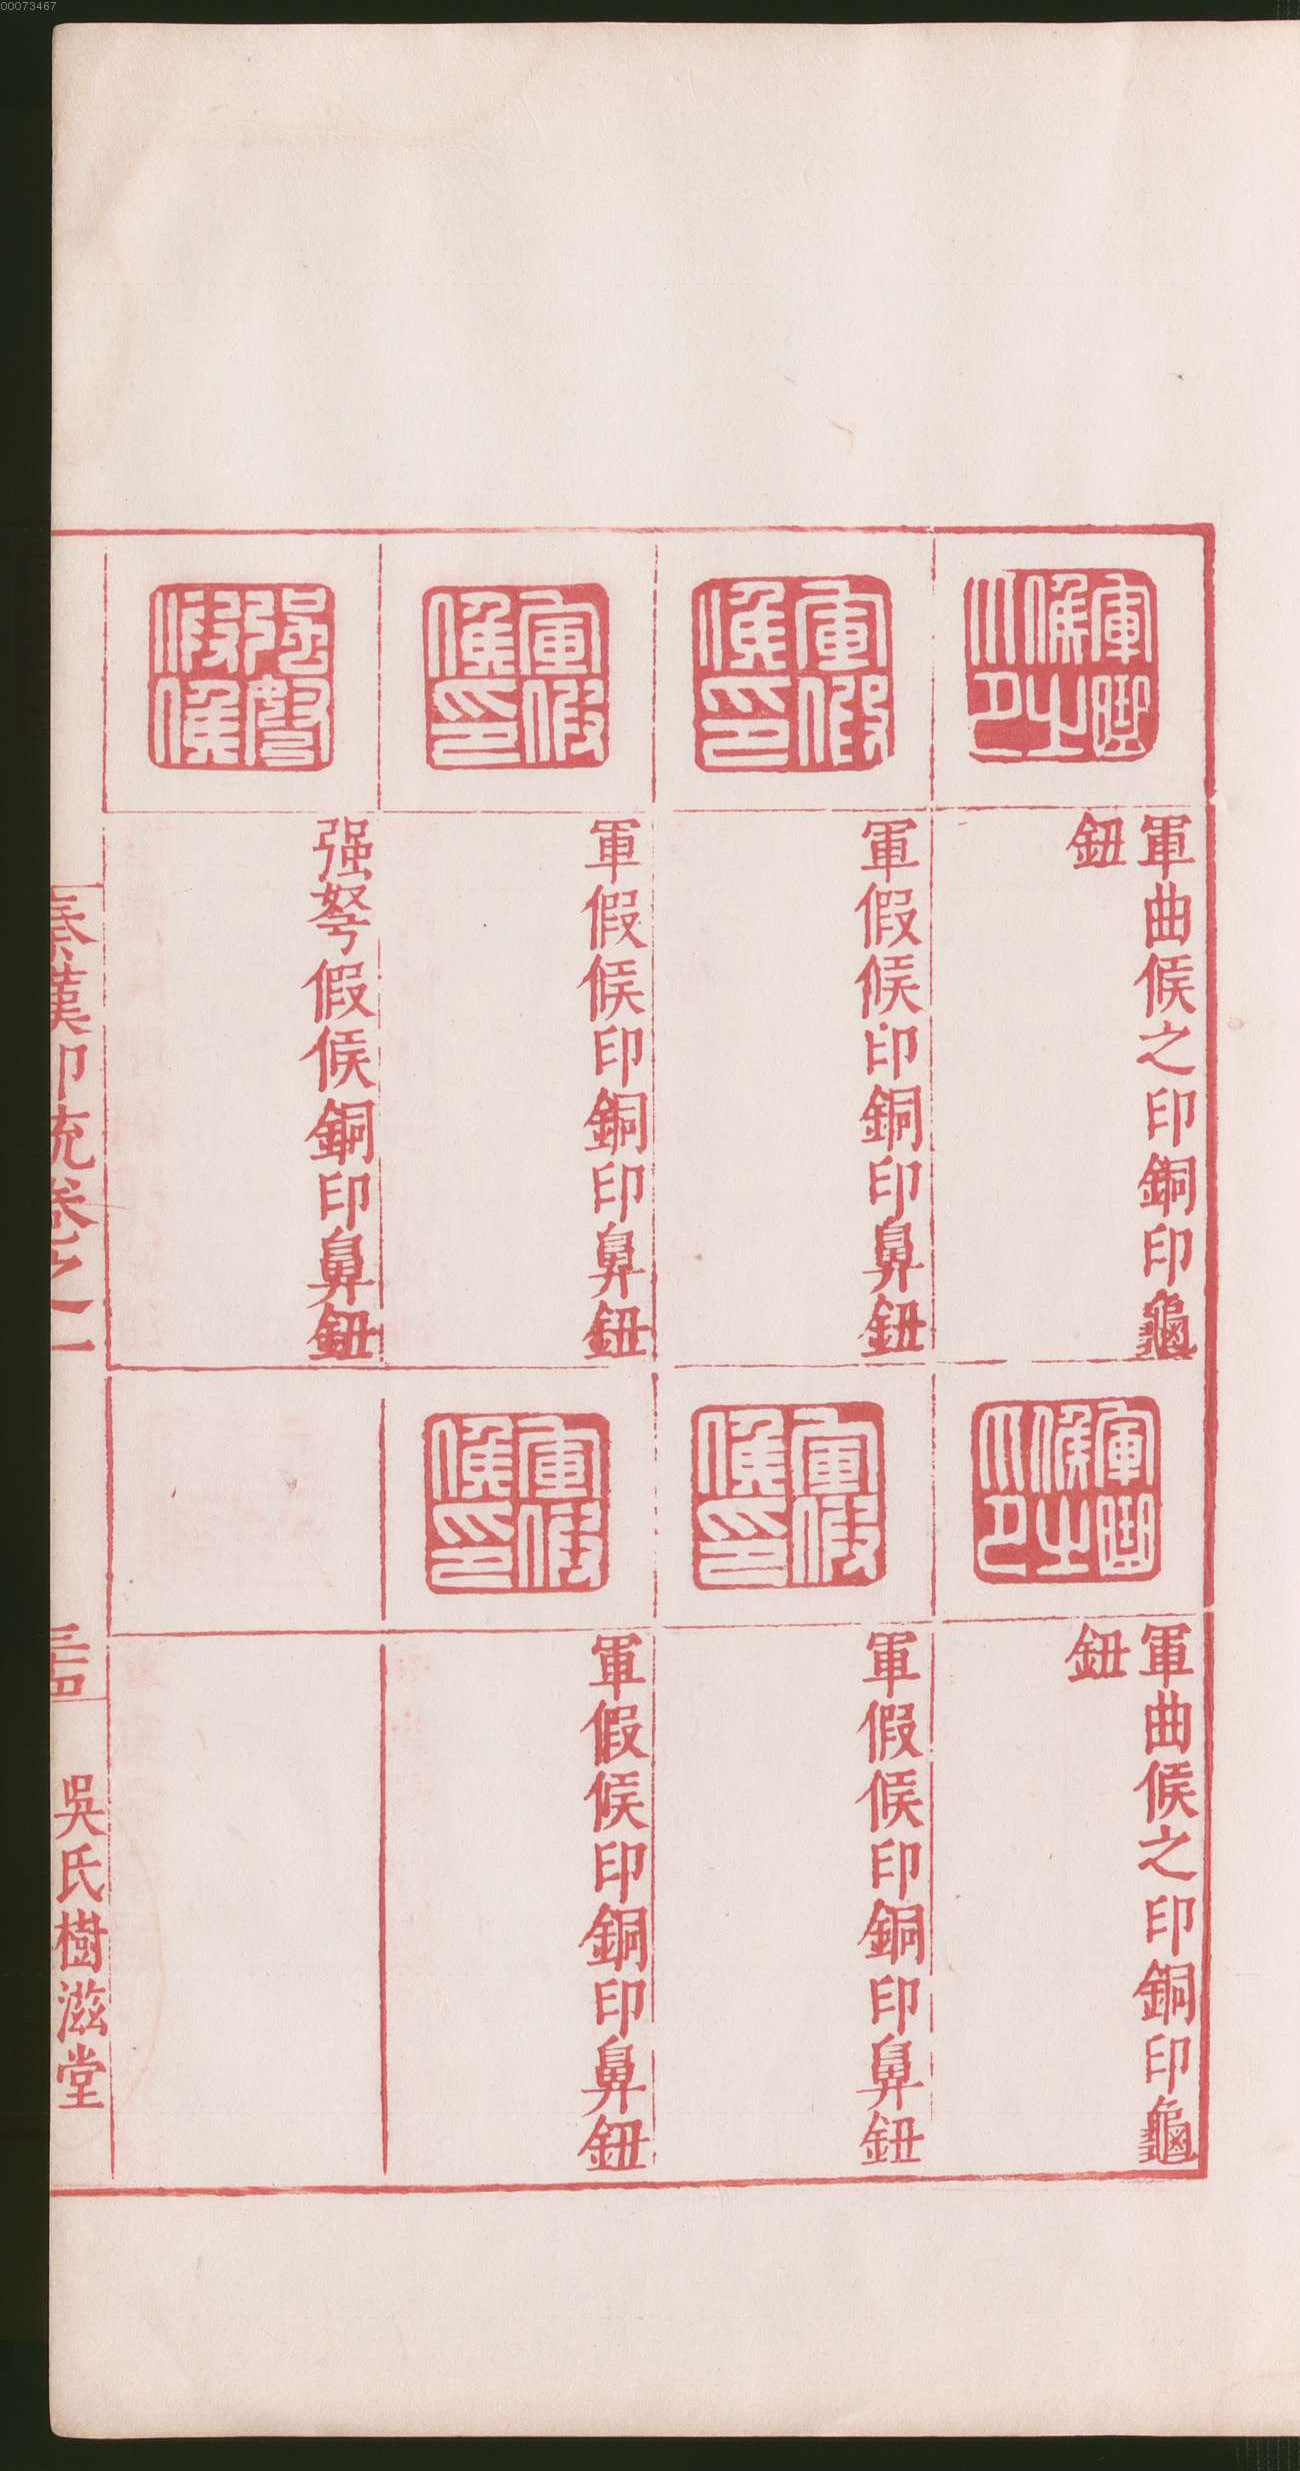 00073467
軍曲候之印
軍曲候之印銅印龜
鈕
軍假候印
軍假候印銅印鼻鈕
軍假候印
軍假候印銅印鼻鈕
强弩假候
强弩假候銅印鼻鈕
軍曲候之印
軍曲候之印銅印龜
鈕
軍假候印
軍假候印銅印鼻鈕
軍假候印
軍假候印銅印鼻鈕
秦漢印統卷之一
三十四
吳氏樹滋堂